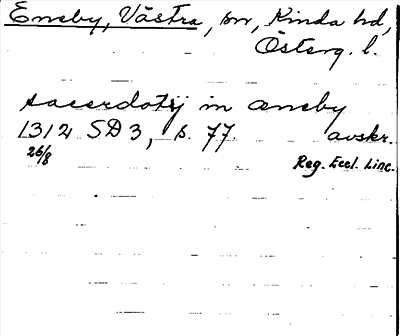 Eneby, Västra, sn, Kinda hd,
Österg. l.
sacerdotij in æneby
1312 SD 3, s. 77. avskr.
26/8 Reg. Eccl. Linc.